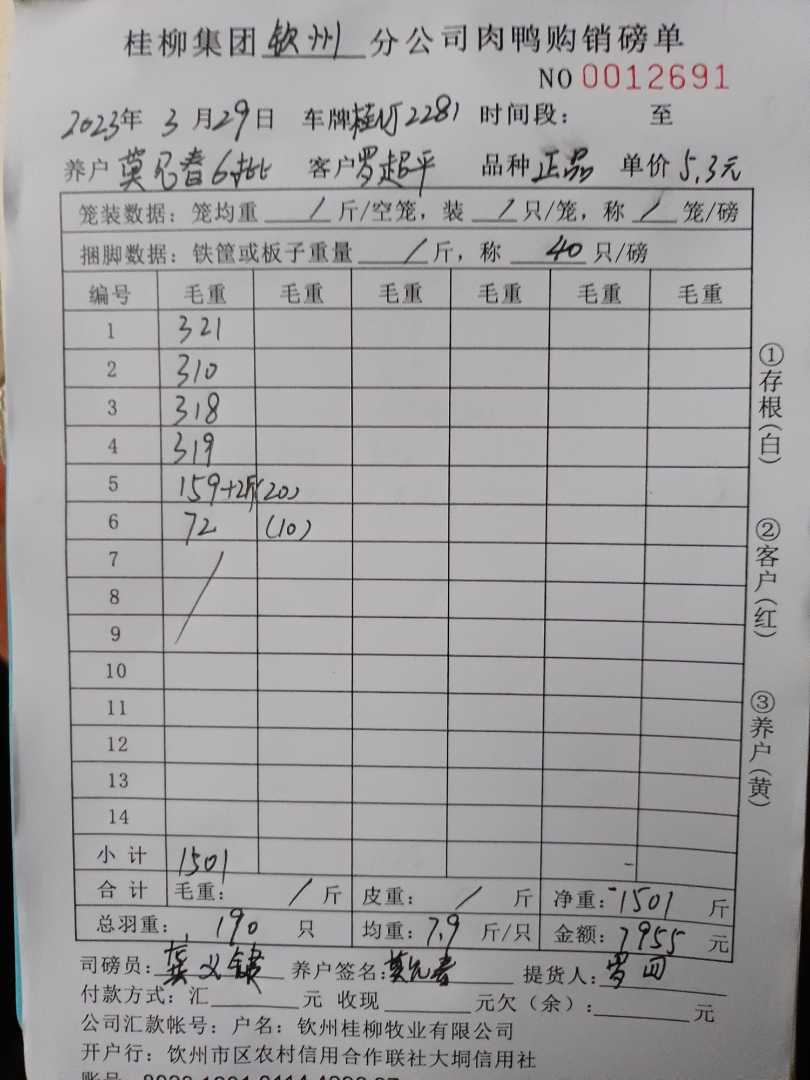 桂柳集团钦州分公司肉鸭购销磅单
NO 0012691
2023年 3月29日 车牌桂N2281 时间段: 至
养户 莫 春6批 客户罗超平 品种正品 单价5.3元
笼装数据:笼均重 / 斤/空笼,装 / 只/笼,称 / 笼/磅
捆脚数据:铁筐或板子重量 / 斤,称 40 只/磅
编号 毛重 毛重 毛重 毛重 毛重 毛重
1 321
2 310
3 318
4 319
5 159+2斤(20)
6 72 (10)
7 /
8
9
10
11
12
13
14
小计 1501
合计 毛重: / 斤 皮重: / 斤 净重:1501 斤
总羽重: 190 只 均重:7.9 斤/只 金额:7955 元
司磅员:龚义 养户签名:莫 春 提货人:罗四
付款方式:汇 元 收现 元欠(余): 元
公司汇款帐号:户名:钦州桂柳牧业有限公司
开户行:钦州市区农村信用合作联社大垌信用社
①存根(白)
②客户(红)
③养户(黄)